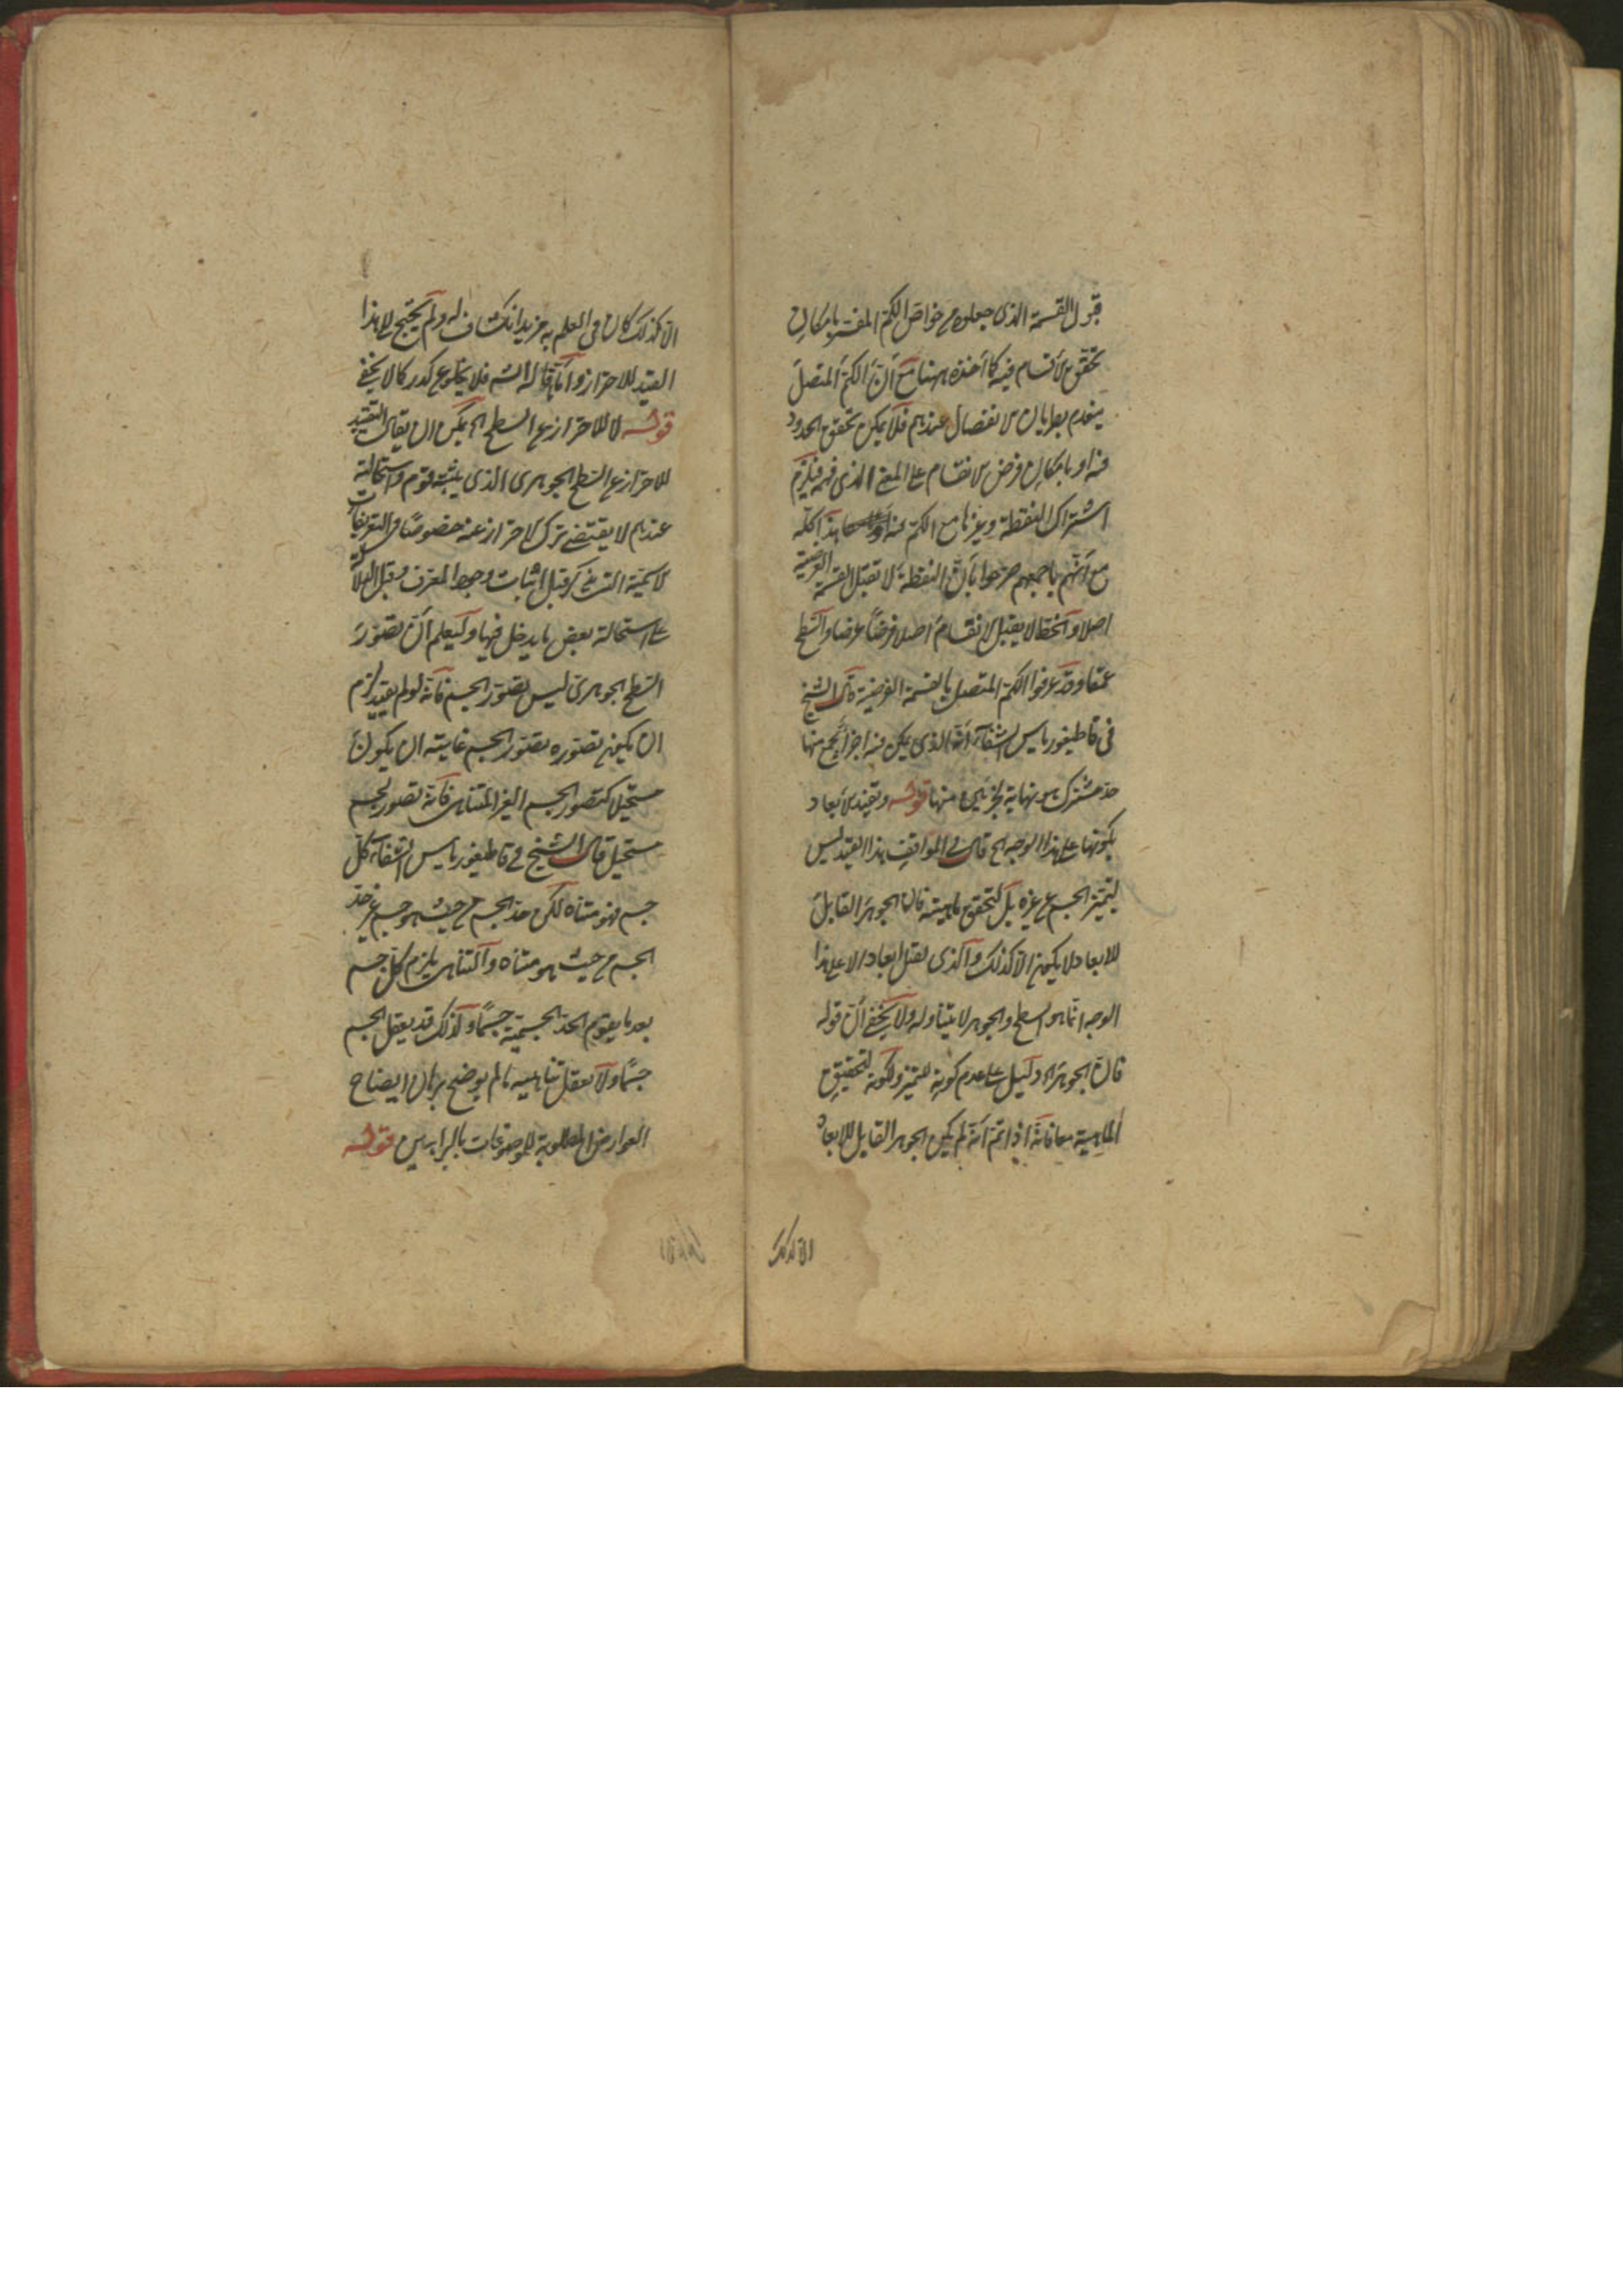 قبول القسمة الذى جعلوه من خواص الكم المفسر بامكان
تحقق الاقسام فيه كما أخذه ههنا مع أنّ الكم المتصل
ينعدم بطريان الانفصال عندهم فلا يمكن تحقق الحدود
فيه او بامكان فرض الانقسام على المعنى الذى فيه فيلزم
اشتراك النقطة وغيرها مع الكم فيه هذا كله
مع أنّهم باجمعهم صرحوا بأنّ النقطة لا تقبل القسمة الفرضية
اصلا والخط لا يقبل الانقسام اصلا فرضاً عرضا والسطح
عمقا وقد عرفوا الكم المتصل بالقسمة الفرضية قال الشيخ
فى قاطيغورياس الشفاء أنه الذى يمكن فيه اجزاء تجمع منها
حد مشترك هو نهاية لجزئين منها قوله وتقييد الابعاد
بكونها على هذا الوجه الخ قال فى المواقف هذا القيد ليس
لتميز الجسم عن غيره بل لتحقق ماهيته فان الجوهر القابل
للابعاد لا يكون الا كذلك والذى يقبل ابعادا لا على هذا
الوجه انما هو السطح والجوهر لا يتناوله ولا يخفى أنّ قوله
فان الجوهر اه دليل على عدم كونه للتميز ولكونه لتحقيق
الماهية معا فانه اذا تم أنه لم يكن الجوهر القابل للابعاد
الا كذلك
الا كذلك كان فى العلم به مزيد انكشاف له ولم يحتج الى هذا
القيد للاحتراز وأما ما قاله الش فلا يخلو عن كدر كما لا يخفى
قوله لا للاحتراز عن السطح الخ يمكن ان يقال التقييد
للاحتراز عن السطح الجوهرى الذى يثبته قوم واستحالته
عندهم لا يقتضى ترك الاحتراز عنه خصوصًا فى التعريفات
الاسمية التى تذكر قبل اثبات وجود المعرف وقبل الدلالة
على استحالة بعض ما يدخل فيها وليعلم أنّ تصوّر
السطح الجوهرى ليس بتصوّر الجسم فانه لو لم يقيد لزم
ان يكون تصوّره تصوّر الجسم غايته ان يكون
مستحيلا كتصور الجسم الغير المتناهى فانه تصور لجسم
مستحيل قال الشيخ فى قاطيغورياس الشفاء كل
جسم فهو متناه لكن حد الجسم من حيث هو جسم غير حد
الجسم من حيث هو متناه والتناهى يلزم كل جسم
بعد ما يقوم الحد الجسمية جسمًا ولذلك قد يعقل الجسم
جسمًا ولا يعقل تناهيه ما لم يوضح ببرهان ايضاح
العوارض المطلوبة للموضوعات بالبراهين قوله